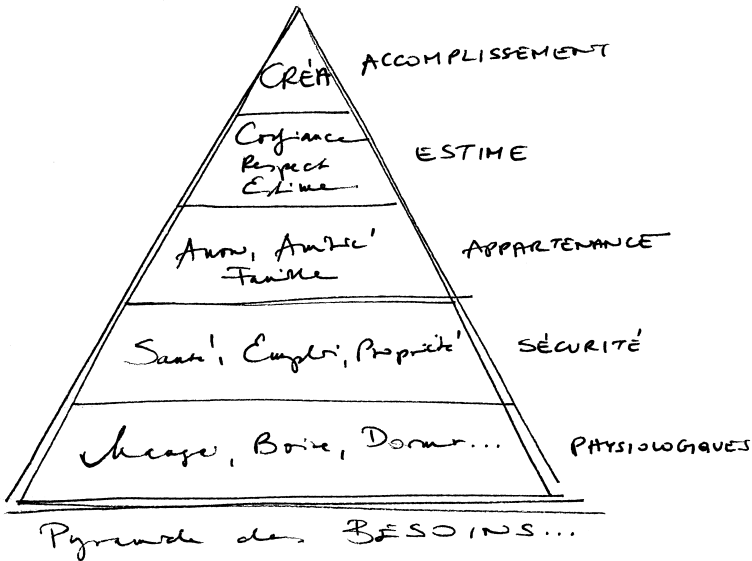 CRÉA
ACCOMPLISSEMENT
Confiance
Respect
Estime
ESTIME
Amour, Amitié
Famille
APPARTENANCE
Santé, Emploi, Propriété
SÉCURITÉ
Manger, Boire, Dormir...
PHYSIOLOGIQUES
Pyramide des BESOINS...